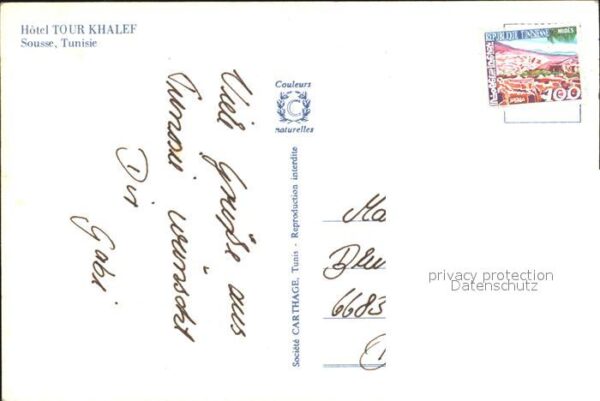 Hôtel TOUR KHALEF
Sousse, Tunisie
Viele Grüße aus
wünscht
Dir
Gabi
Couleurs
C
naturelles
Société CARTHAGE, Tunis - Reproduction interdite
REPUBLIQUE TUNISIENNE
MIDES
100
Ma
6683
privacy protection
Datenschutz